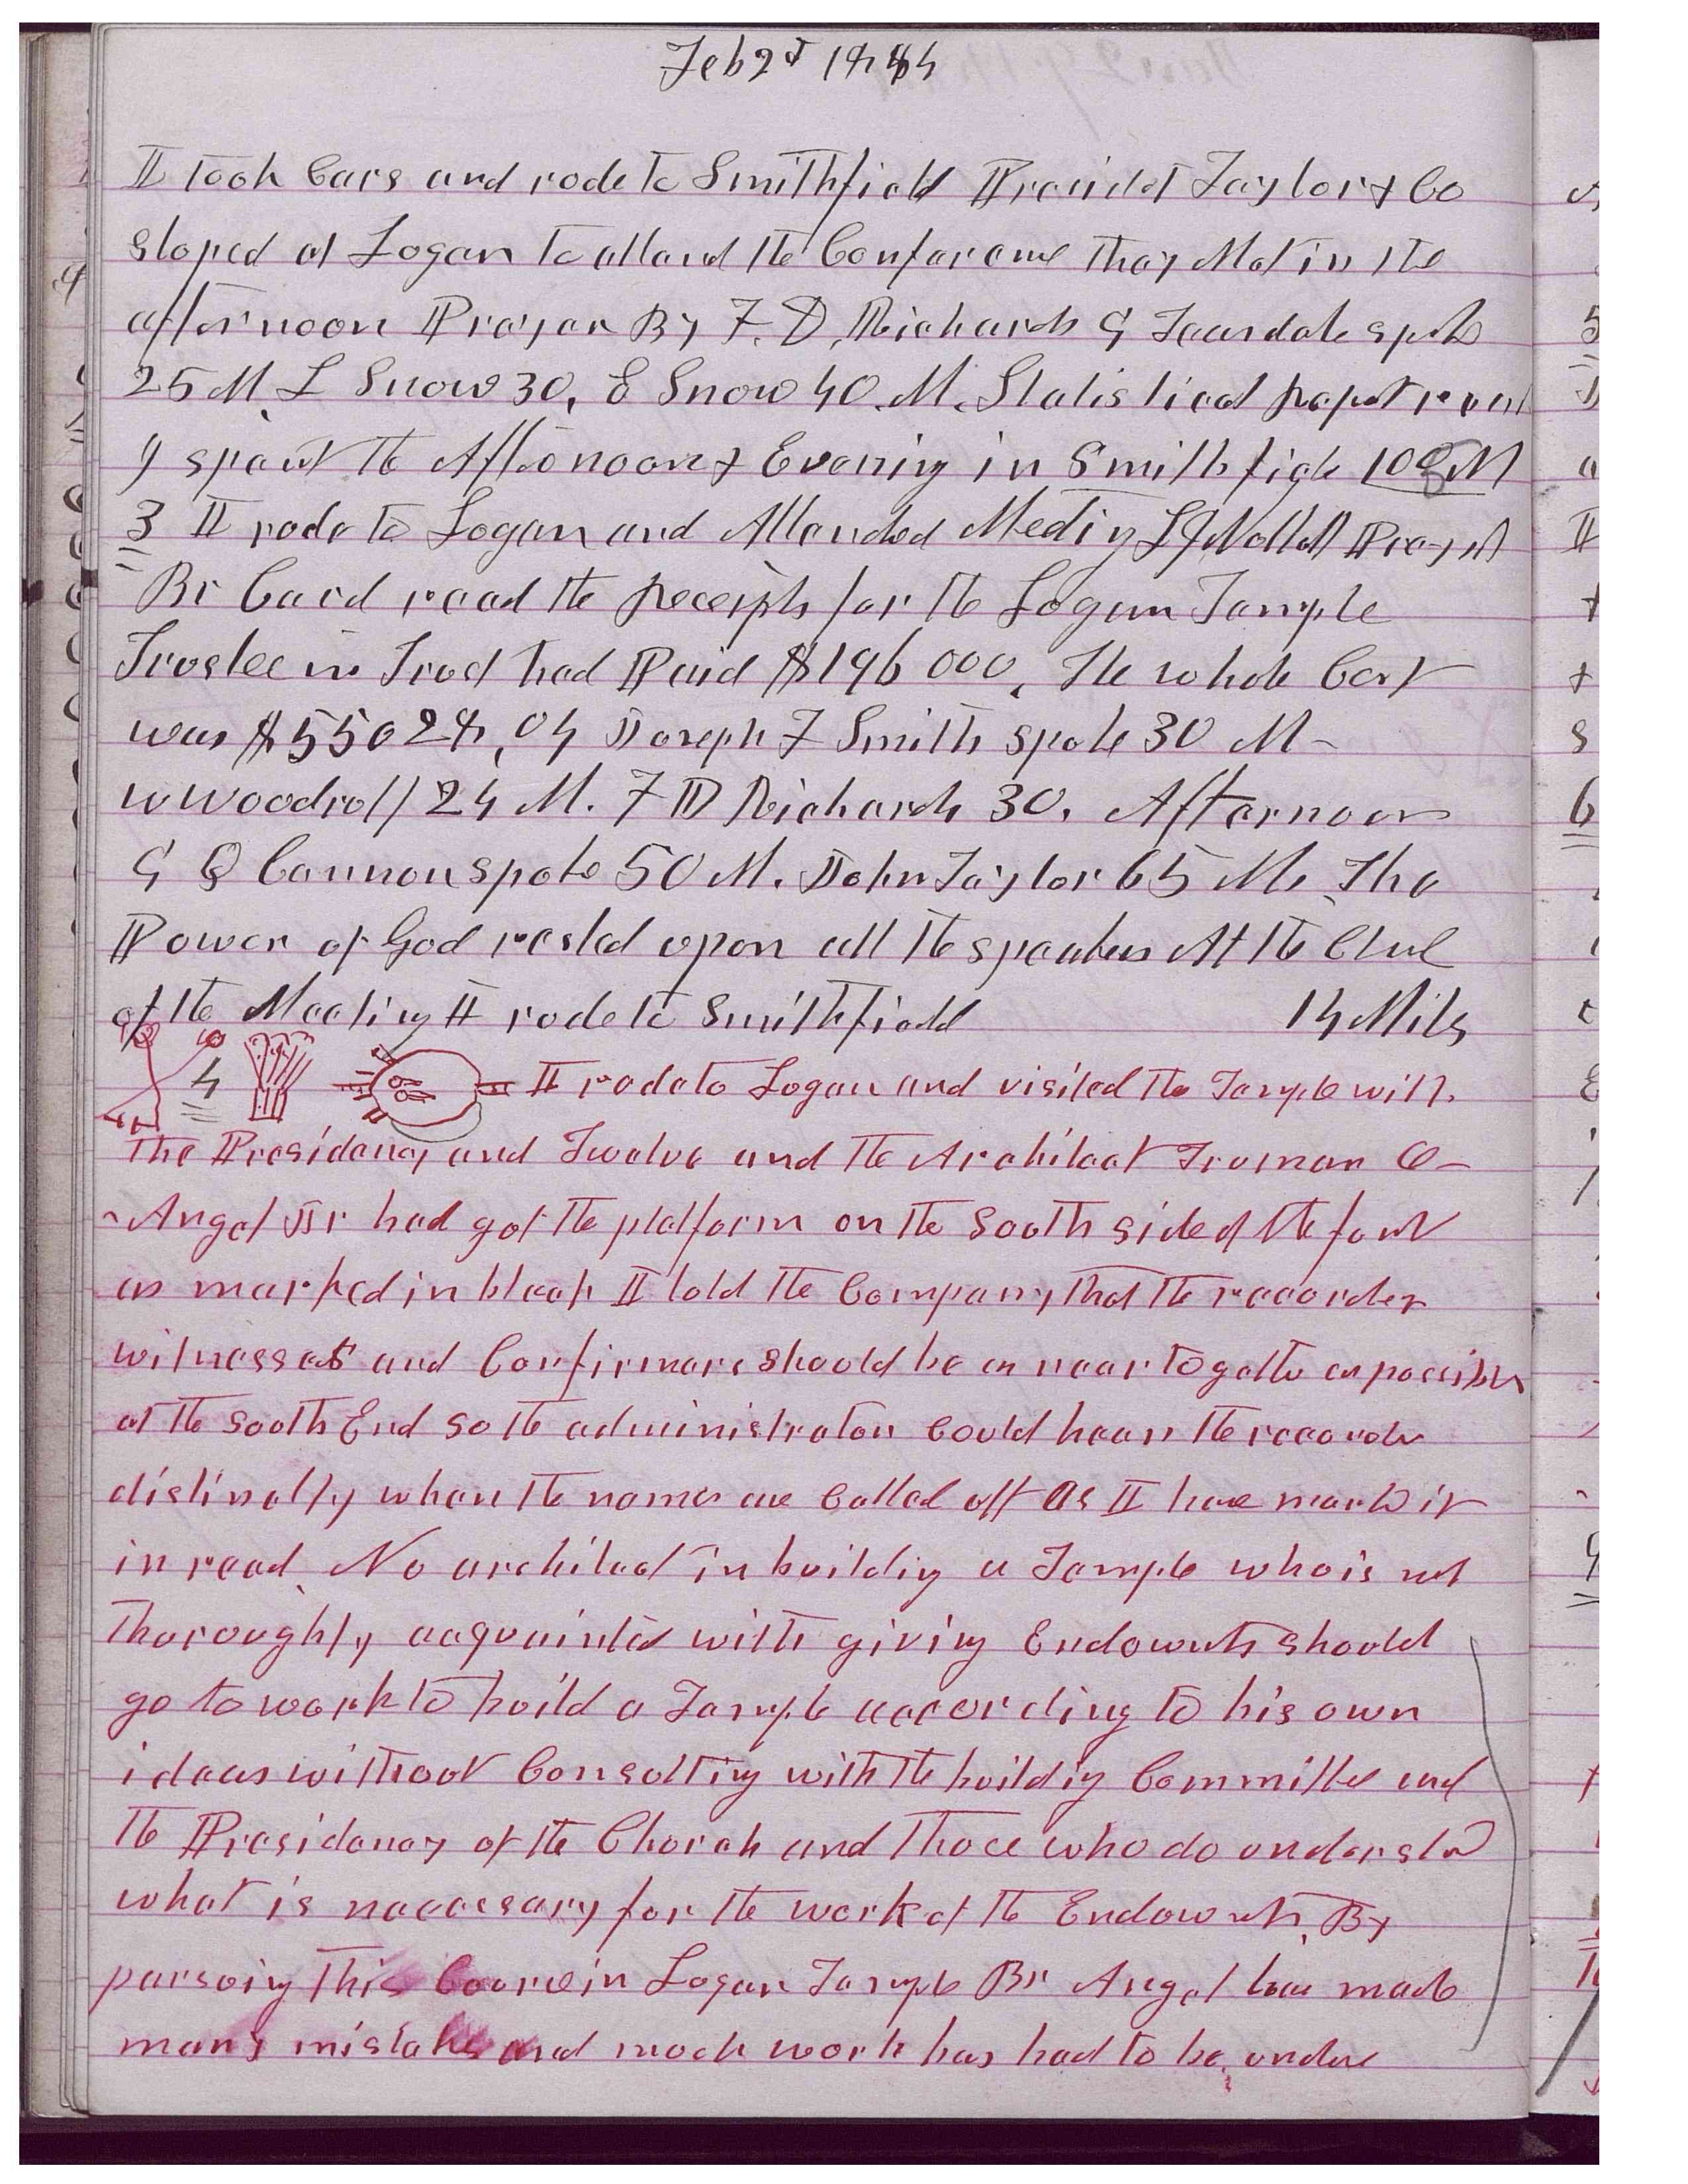 Feb 2d 1884
I took Cars and rode to Smithfield Presidet Taylor & Co
stoped at Logan to attend the Conference They Met in the
afternoon Prayer By F. D. Richards G Teasdale spoke
25 M. L Snow 30, E Snow 40. M. Statistical
I spent the Afternoon & Evening in Smithfield 108 M
3 I rode to Logan and Attended Meeting Prayed
Br Card read the Receipts for the Logan Temple
Trustee in Trust had Paid $196 000, The whole Cost
was $55028,04 Joseph F Smith spoke 30 M-
W Woodruff 24 M. F D Richards 30. Afternoon
G Q Cannon spoke 50 M. John Taylor 65 M, The
Power of God rested upon all the speakers At the Close
of the Meeting I rode to Smithfield 14 Miles
4 I rode to Logan and visited the Temple with
The Presidency and Twelve and the Architect Truman O-
-Angel Jr had got the platform on the South side of the font
as marked in black I told the Company that the recorder
witnesses and Confirmers should be as near together as possible
at the South End so the administrator Could hear the recorder
distinctly when the names are Called off As I have markd it
in read. No architect in building a Temple who is not
thoroughly acquainted with giving Endowmts should
go to work to build a Temple according to his own
ideas without Consulting with the building Committee and
the Presidency of the Church and those who do understd
what is neccessary for the work of the Endowmts. By
persuing this Course in Logan Temple Br Angel has made
many mistakes and much work has had to be undone